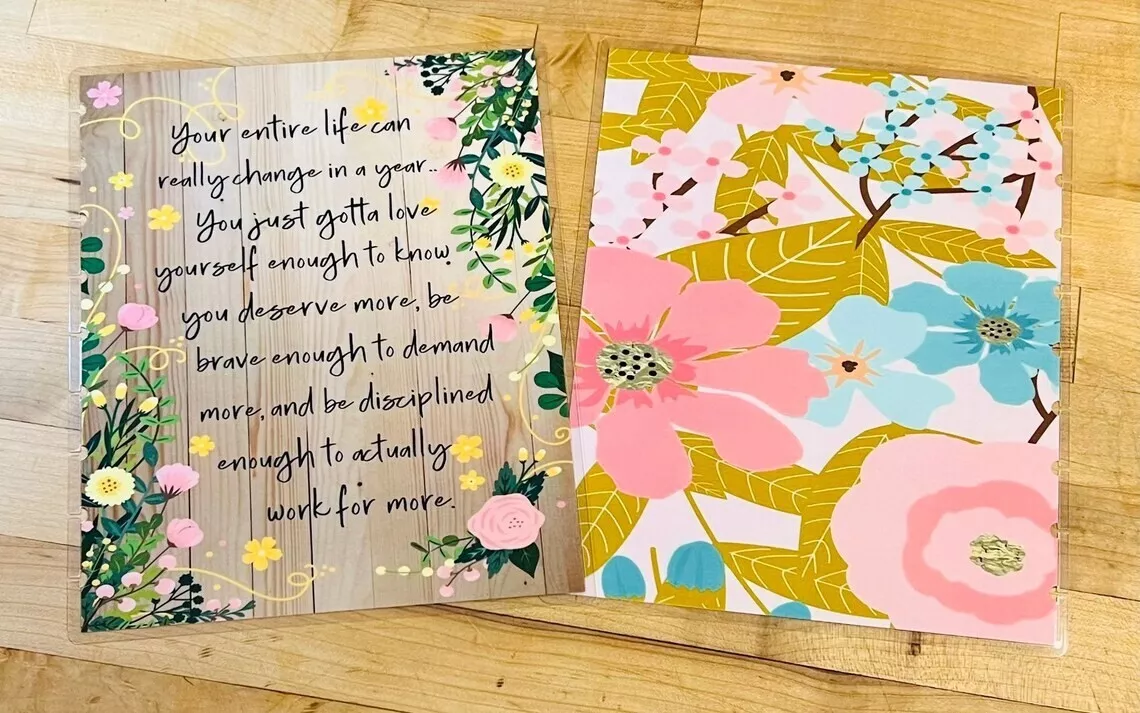 Your entire life can
really change in a year..
You just gotta love
yourself enough to know
you deserve more, be
brave enough to demand
more, and be disciplined
enough to actually
work for more.